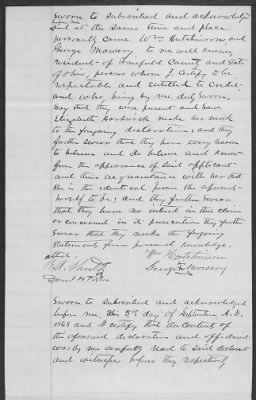 Sworn to subscribed and acknowledged
before me
and at the same time and place
personally came Wm Hutchinson and
George Mowery to me well known,
residents of Fairfield County and State
of Ohio, persons whom I certify to be
respectable and entitled to credit
and who, being by me duly sworn,
say that they were present and saw
Elizabeth make her mark
to the foregoing declaration; and they
further swear that they have every reason
to believe and do believe and know
from the appearance of said applicant
and their acquaintance with her that
she is the identical person she represents
herself to be; and they further swear
that they have no interest in this claim
or concerned in its prosecution they further
swear that they make the foregoing
statements from personal knowledge.
attest
Wm Hutchinson
George Mowery
mark
Sworn to subscribed and acknowledged
before me, this 5th day of September A.D.
1868 and I certify that the contents of
the aforesaid declaration and affidavit
was by me carefully read to said declarant
and witnesses before they respectively